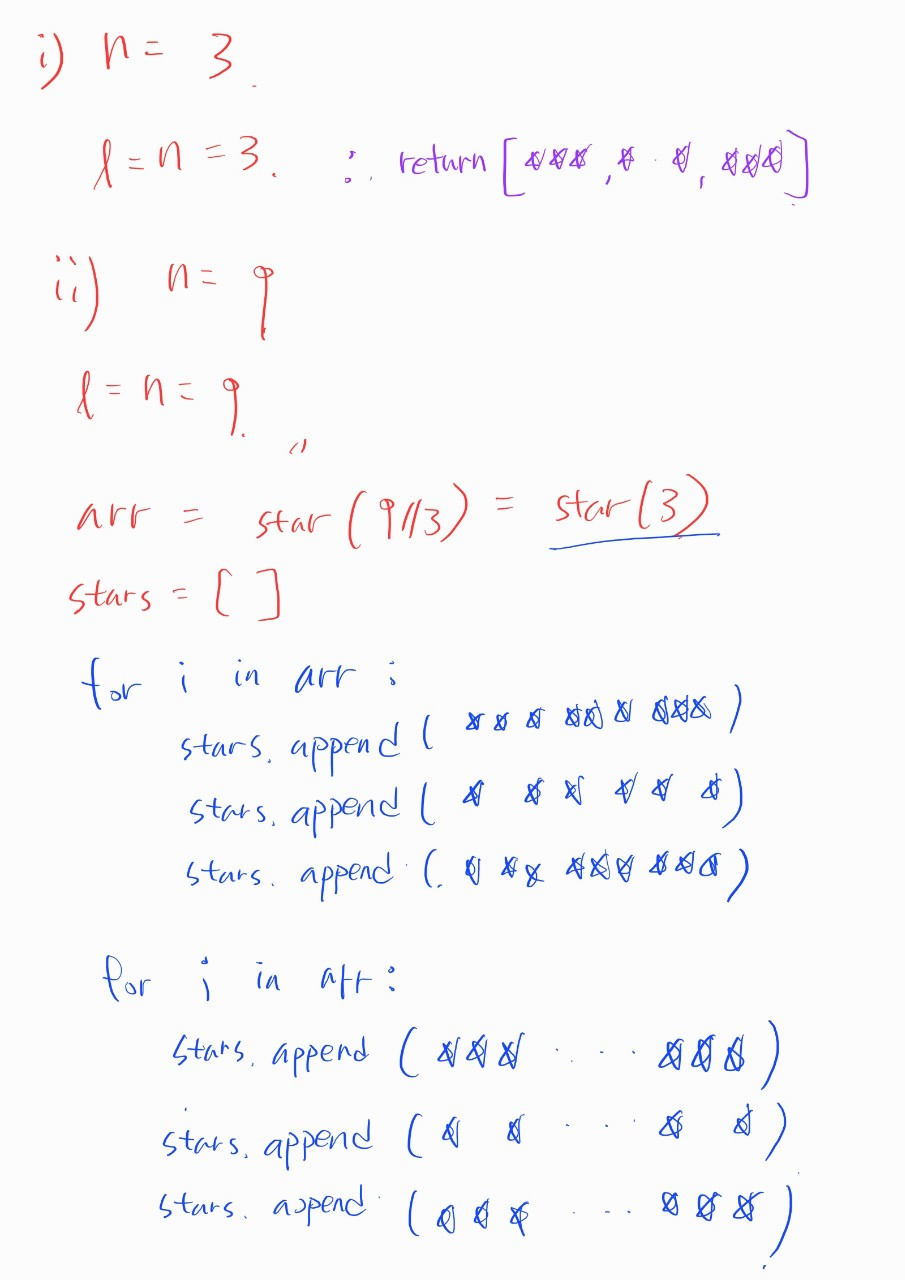 i) n = 3.
l = n = 3. ∴ return [***, * *, ***]
ii) n = 9
l = n = 9.
arr = star(9//3) = star(3)
stars = [ ]
for i in arr :
stars.append( *** *** *** )
stars.append( * * * * * * )
stars.append( *** *** *** )
for i in arr :
stars.append( *** ... *** )
stars.append( * * ... * * )
stars.append( *** ... *** )